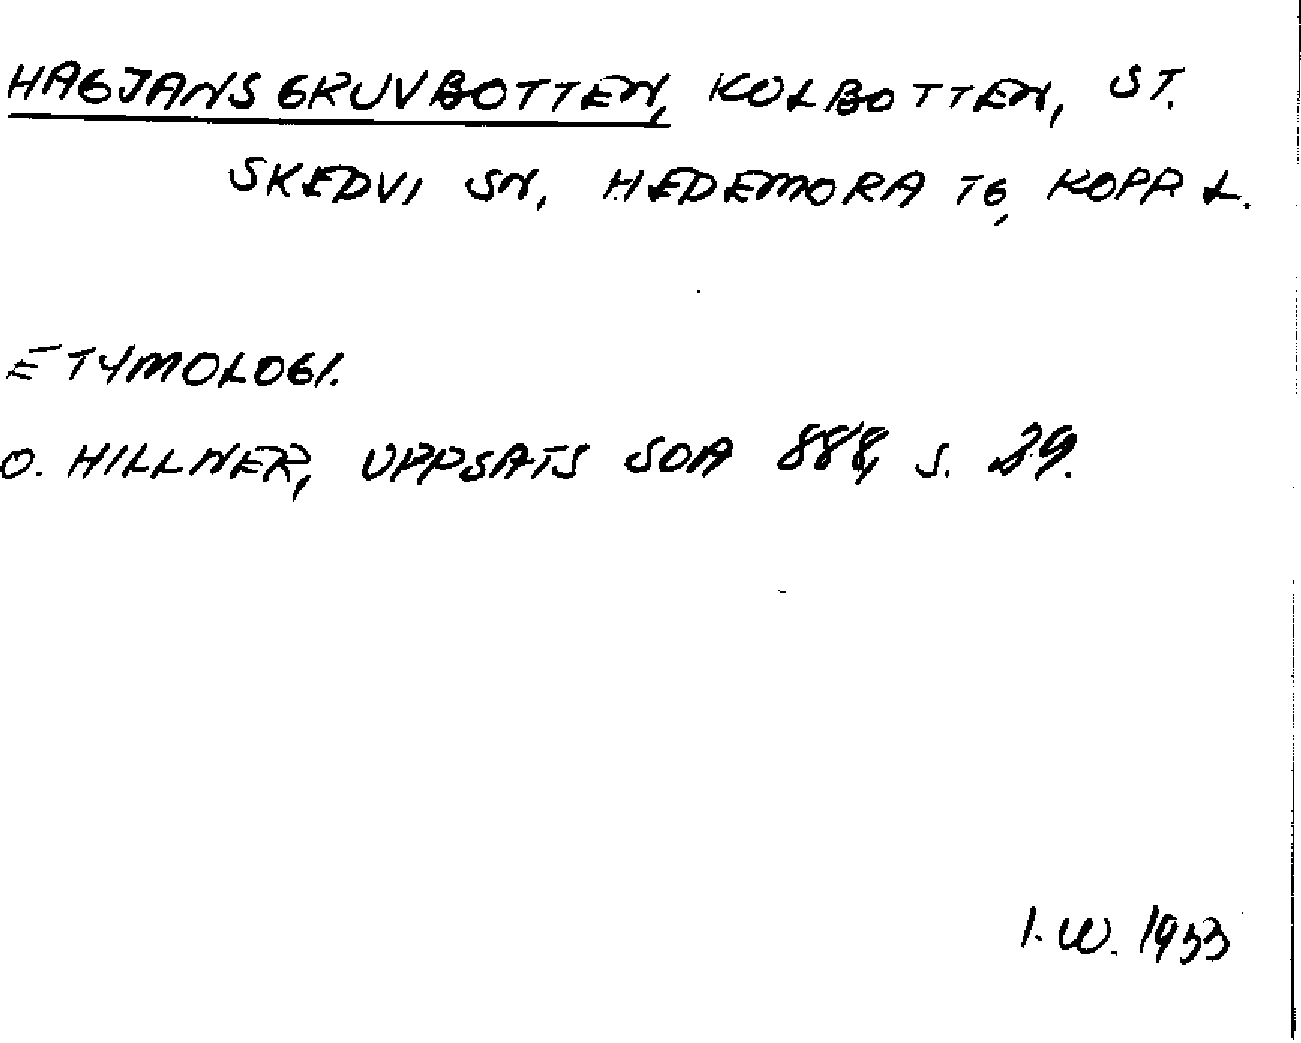 HAGJANSGRUVBOTTEN, KOLBOTTEN, ST.
SKEDVI SN, HEDEMORA TG, KOPP L.
ETYMOLOGI.
O. HILLNER, UPPSATS SOA 888, S. 29.
I. W. 1933